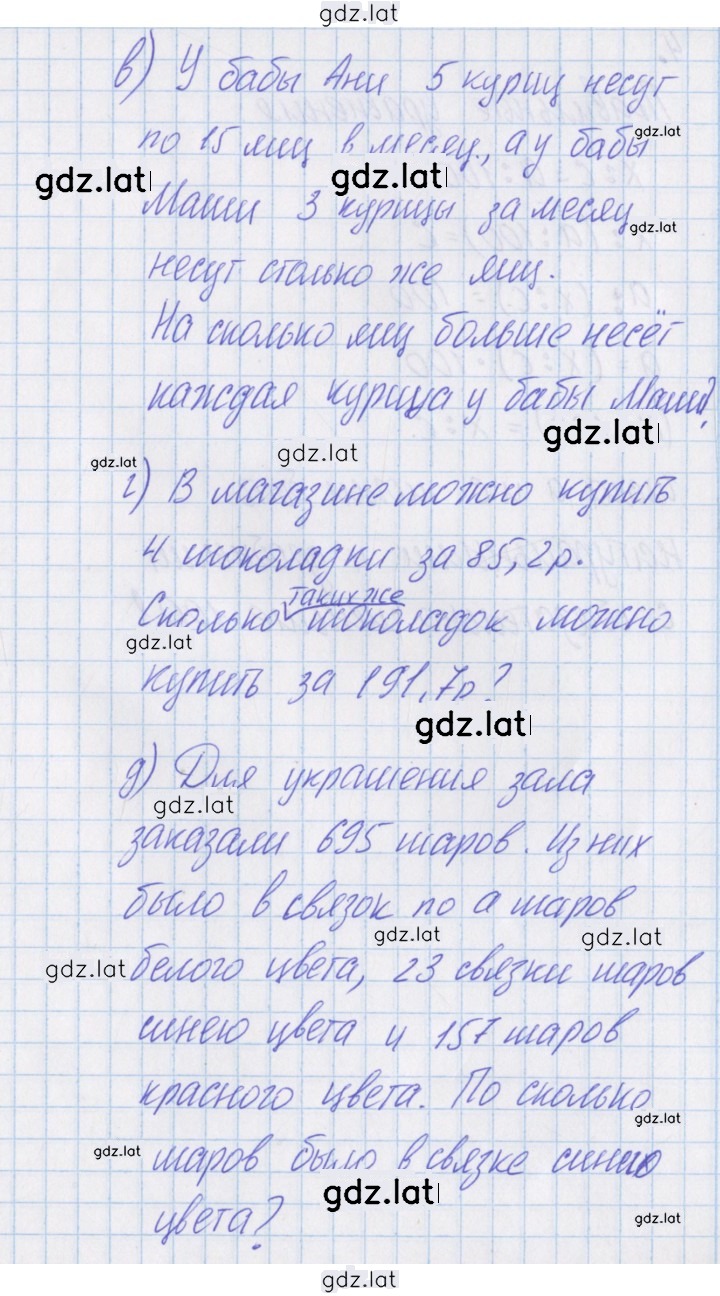 gdz.lat
в) У бабы Ани 5 куриц несут
по 15 яиц в месяц, а у бабы
gdz.lat
gdz.lat
gdz.lat
Маши 3 курицы за месяц
gdz.lat
несут столько же яиц.
На сколько яиц больше несёт
каждая курица у бабы Маши?
gdz.lat
gdz.lat
gdz.lat
г) В магазине можно купить
4 шоколадки за 85,2р.
таких же
Сколько шоколадок можно
gdz.lat
купить за 191,7р?
gdz.lat
д) Для украшения зала
gdz.lat
заказали 695 шаров. Из них
было в связок по а шаров
gdz.lat
gdz.lat
gdz.lat
белого цвета, 23 связки шаров
синего цвета и 157 шаров
красного цвета. По сколько
gdz.lat
gdz.lat
шаров было в связке синего
gdz.lat
цвета?
gdz.lat
gdz.lat